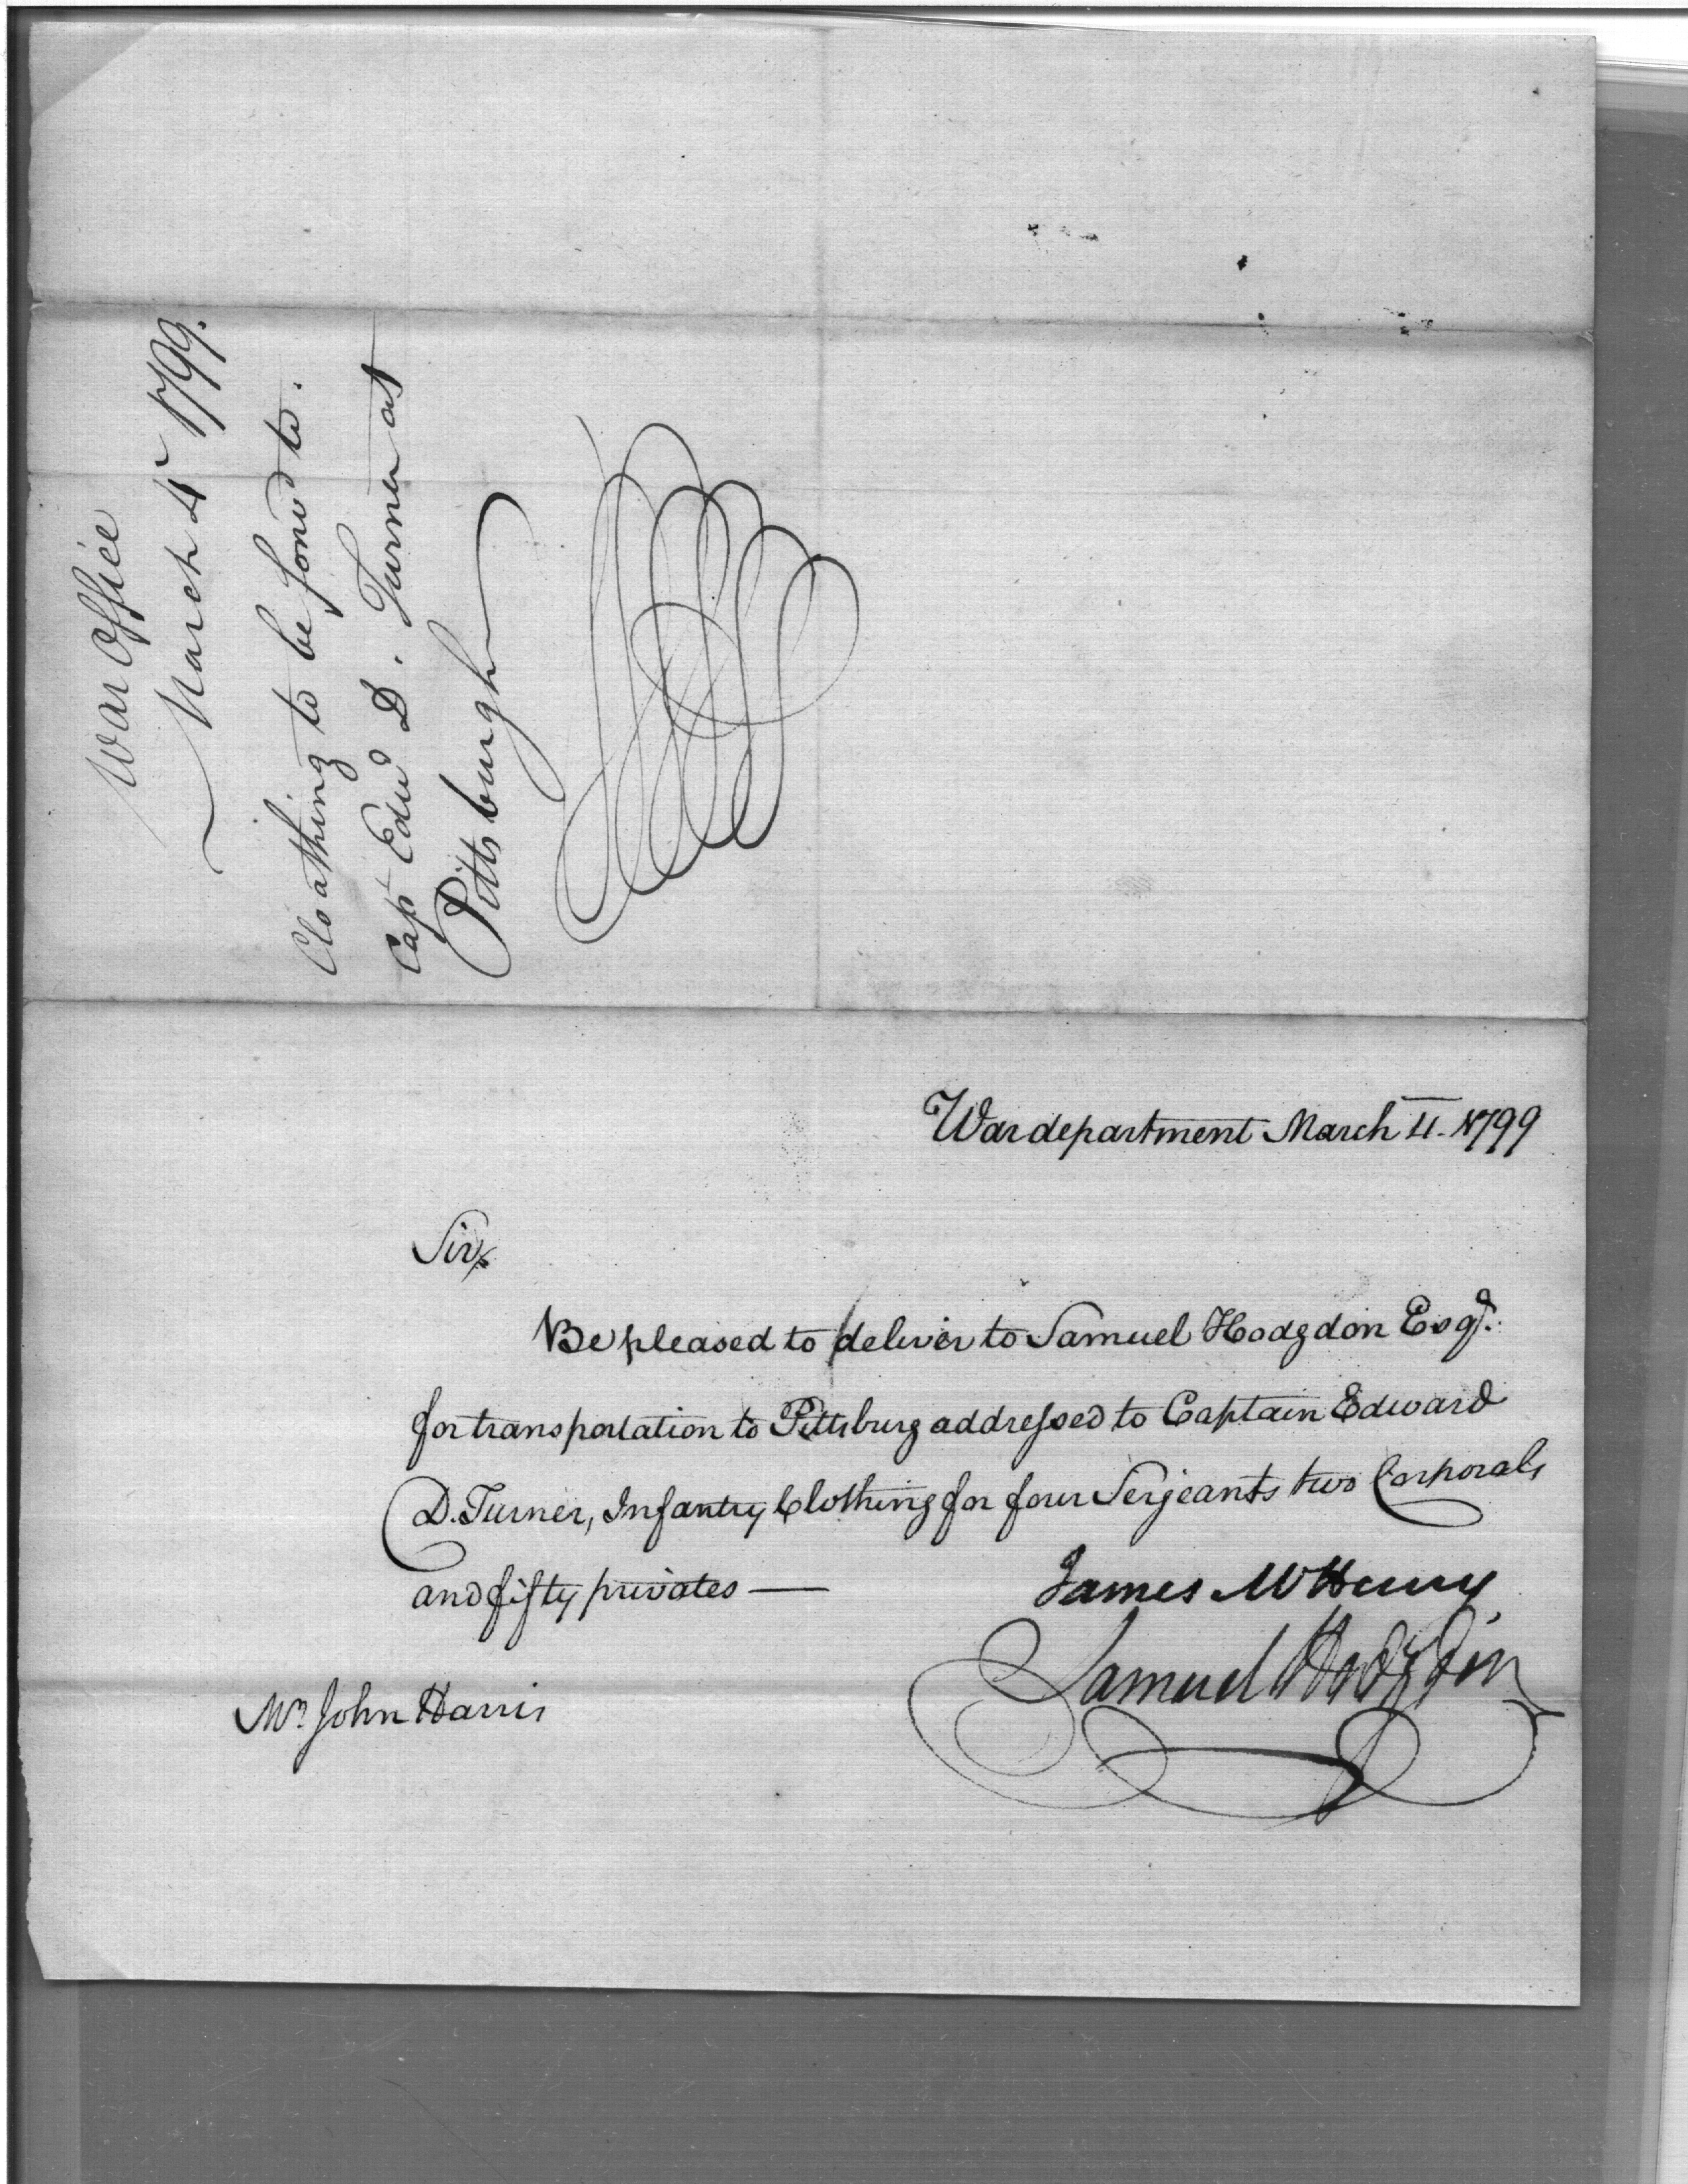 War Office
March 4 1799.
Cloathing to be forwd to.
Capt Edwd D. Turner at
Pittsburgh
War department March 4. 1799
Sir,
Be pleased to deliver to Samuel Hodgdon Esqr.
for transportation to Pittsburg addressed to Captain Edward
D. Turner, Infantry Clothing for four Serjeants two Corporals
and fifty privates —
James McHenry
Samuel Hodgdon
Mr. John Harris